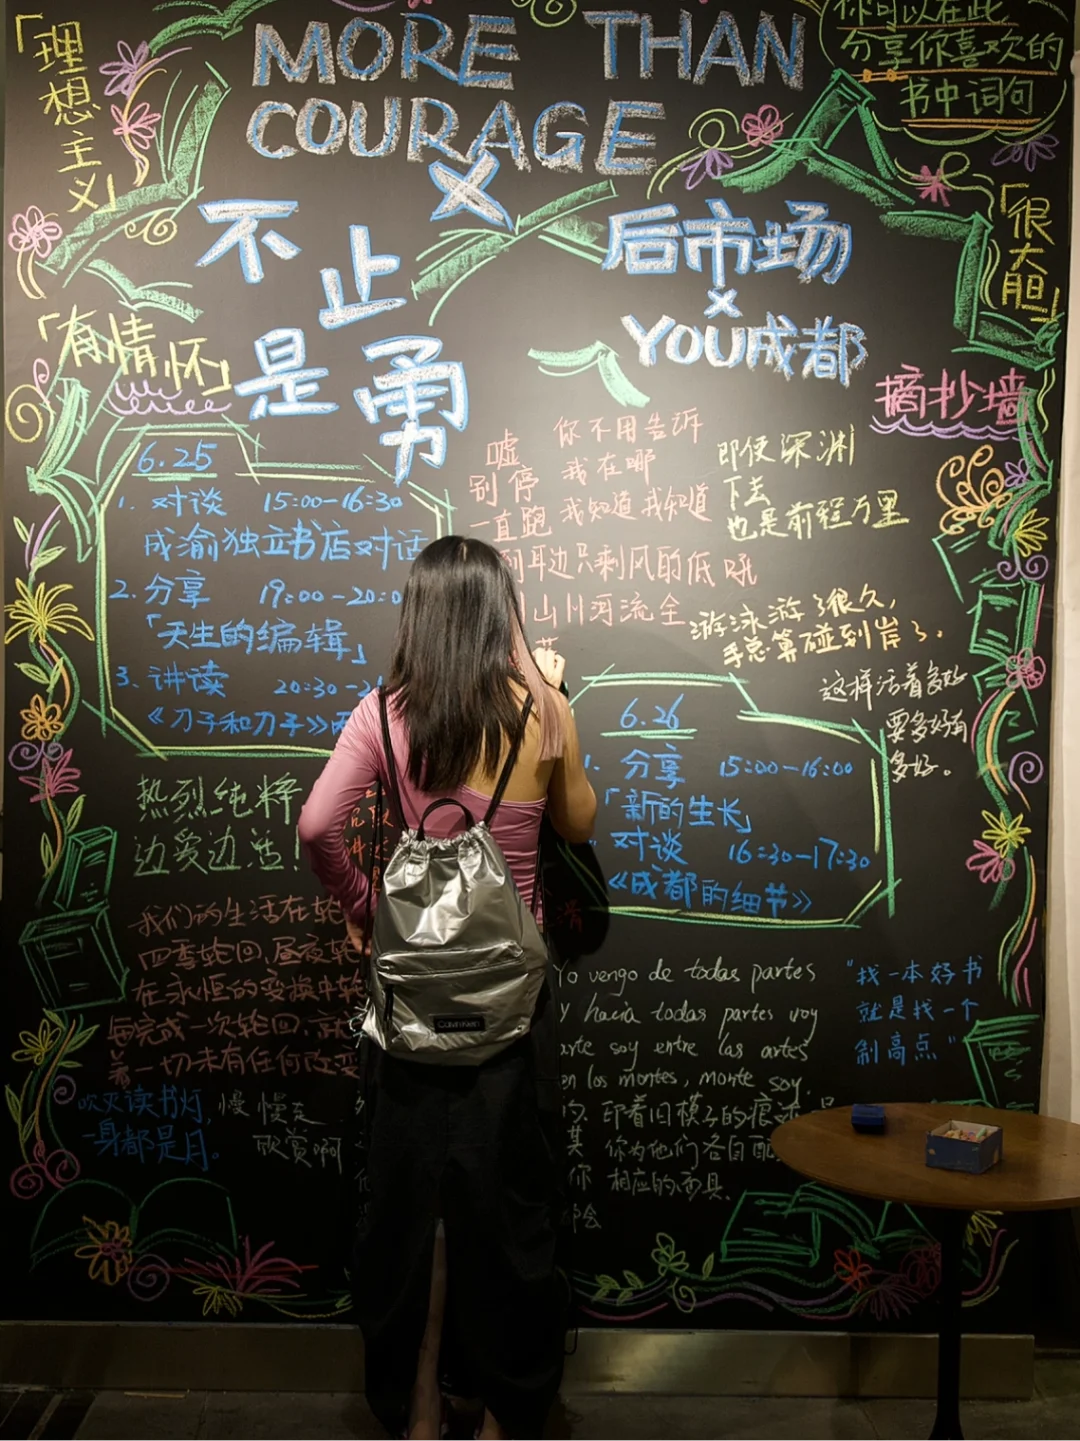 MORE THAN
COURAGE
×
不止
是勇
后市场
×
YOU成都
你可以在此
分享你喜欢的
书中词句
「理想主义」
「很大胆」
「有情怀」
摘抄墙
6.25
1. 对谈 15:00-16:30
成渝独立书店对话
2. 分享 19:00-20:0
「天生的编辑」
3. 讲读 20:30-2
《刀子和刀子》
嘘
别停
一直跑
到耳边只剩风的低吼
山川河流全
你不用告诉
我在哪
我知道我知道
即使深渊
下去
也是前程万里
游泳游了很久,
手总算碰到岸了.
这样活着多好
要多好有
多好。
6.26
1. 分享 15:00-16:00
「新的生长」
对谈 16:30-17:30
《成都的细节》
热烈纯粹
边爱边活!
我们的生活在轮
四季轮回,昼夜轮
在永恒的变换中轮
每完成一次轮回,
着一切未有任何改变
吹灭读书灯,
一身都是月。
慢慢走
欣赏啊
Yo vengo de todas partes
Y hacia todas partes voy
arte soy entre las artes
en los montes, monte soy
印着旧模子的痕迹
你为他们各自配
相应的面具.
"找一本好书
就是找一个
制高点"
Calvin Klein